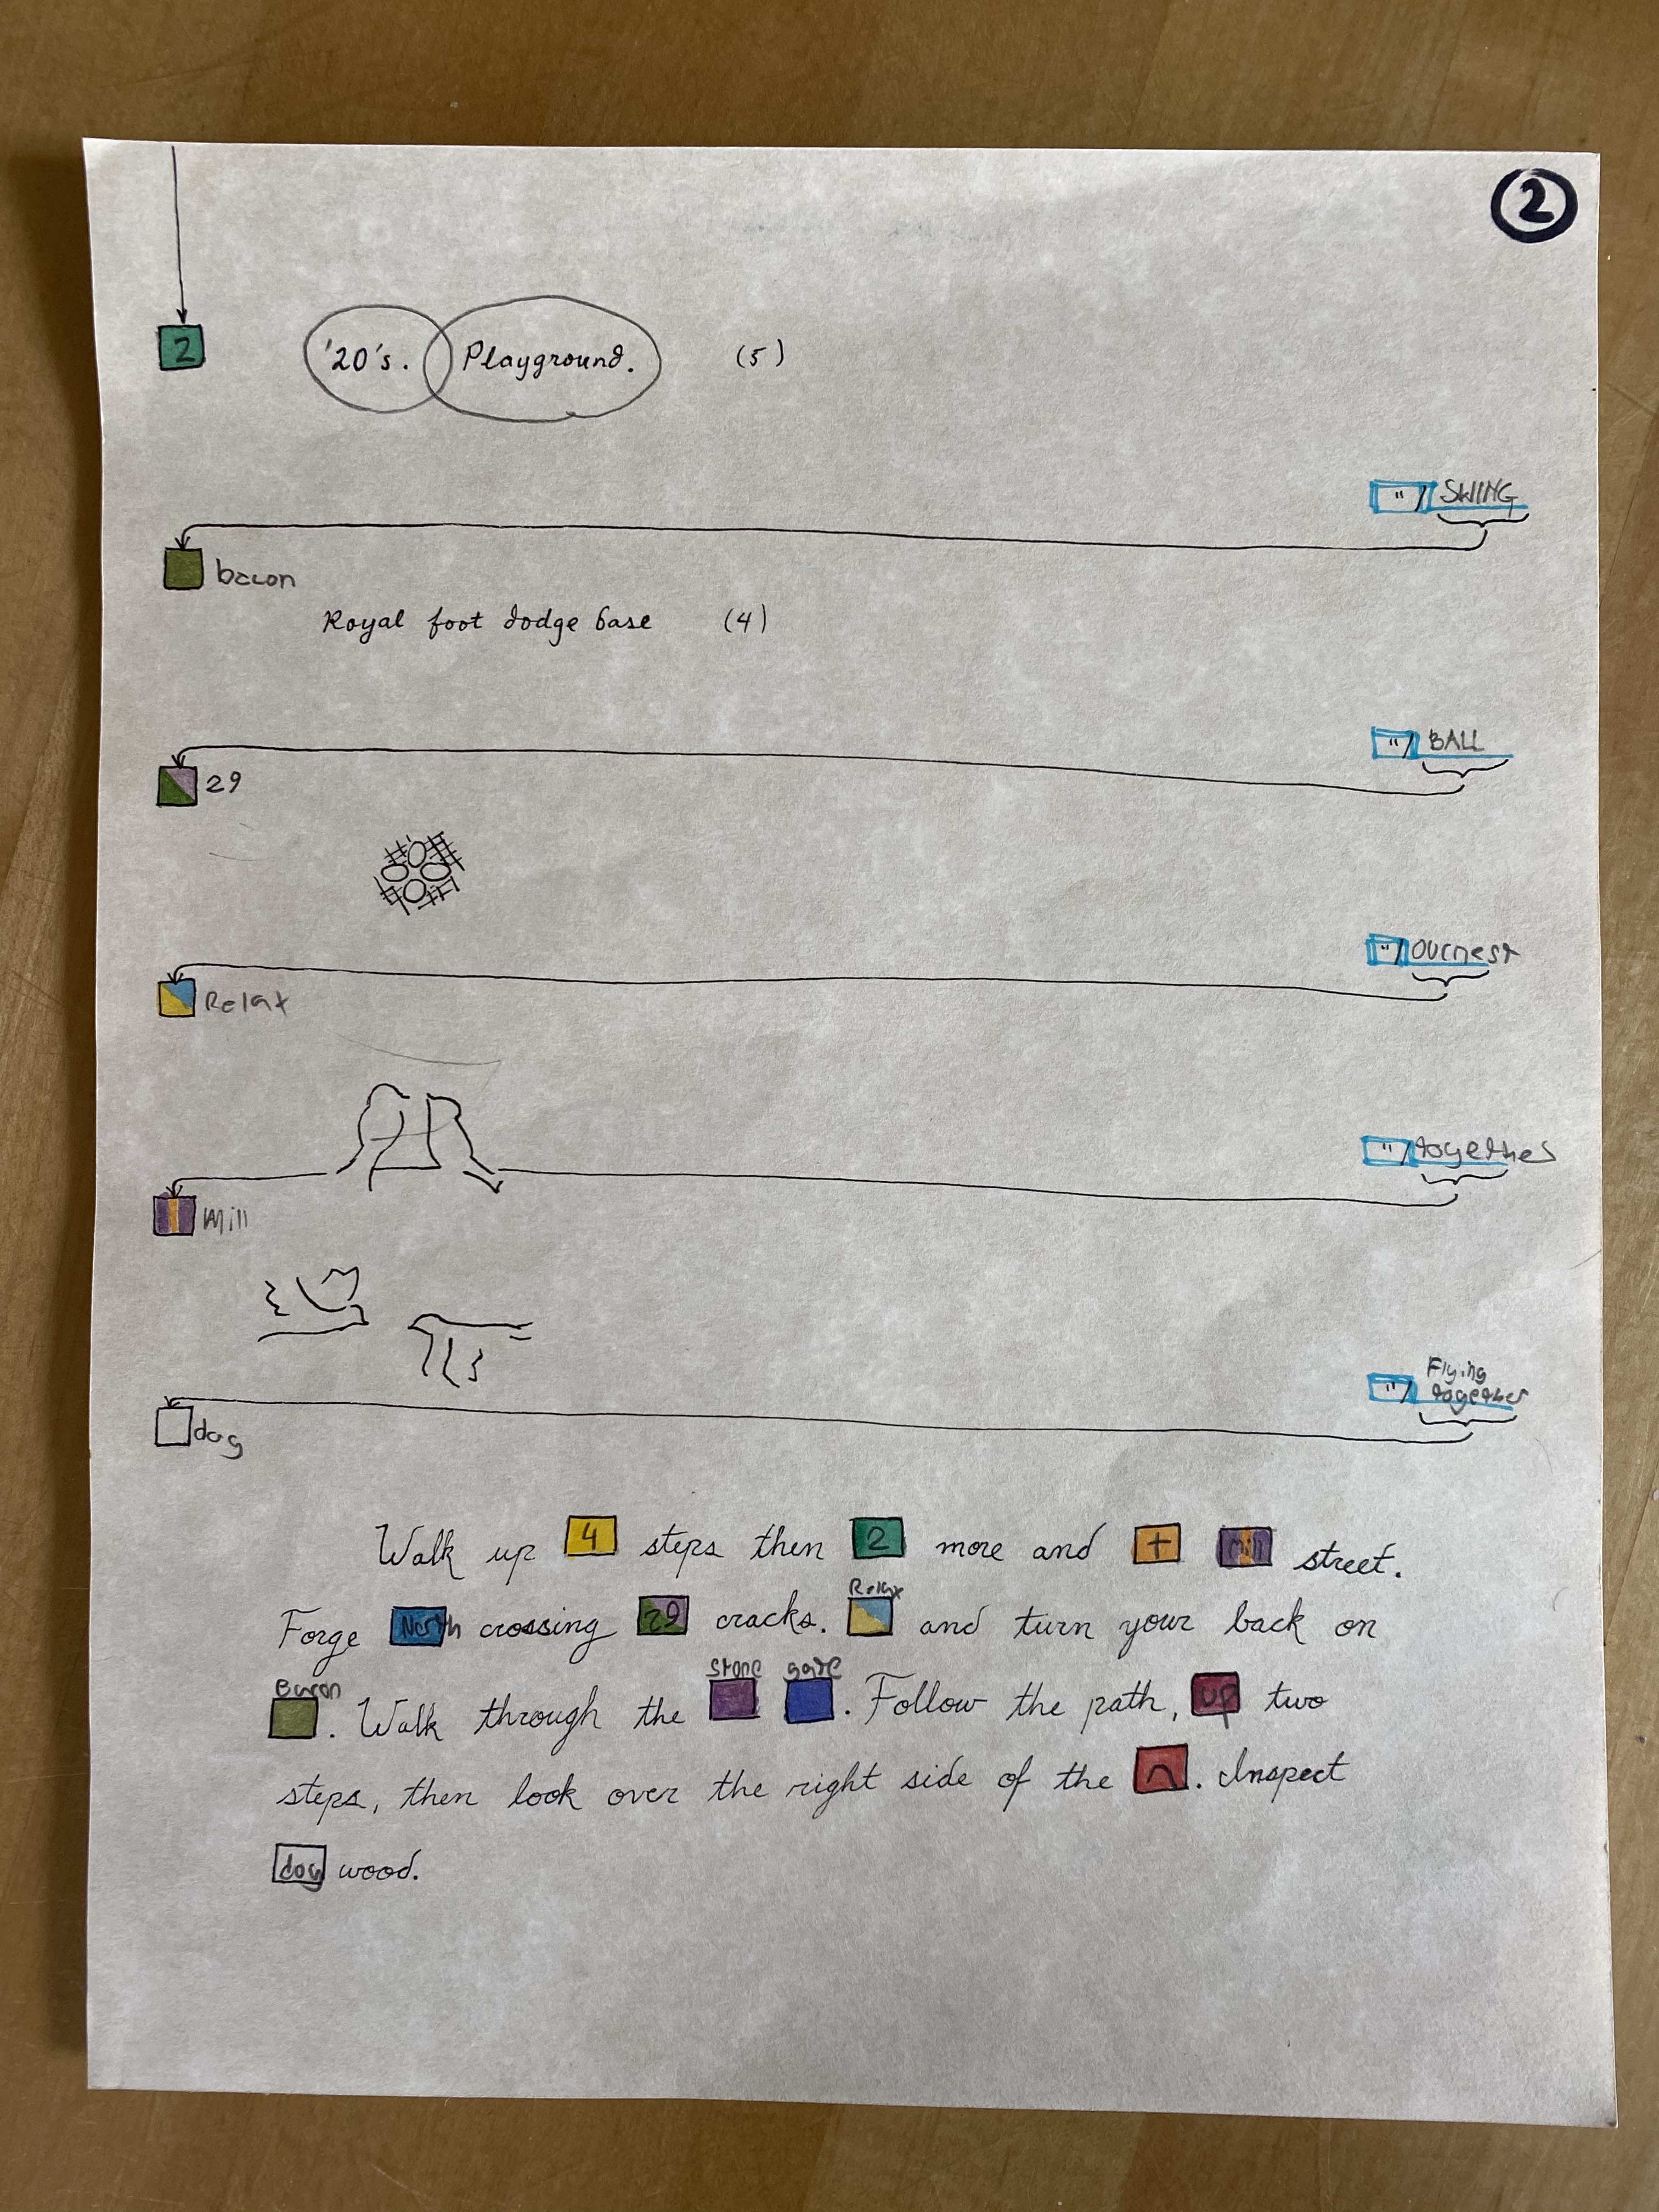 2
2 '20's. Playground. (5)
"/ SWING
bacon
Royal foot dodge base (4)
"/ BALL
29
"/ ournest
Relax
"/ together
Mill
"/ Flying
together
dog
Walk up 4 steps then 2 more and + Mill street.
Relax
Forge North crossing 29 cracks. and turn your back on
Bacon stone gate
. Walk through the . Follow the path, up two
steps, then look over the right side of the . Inspect
dog wood.